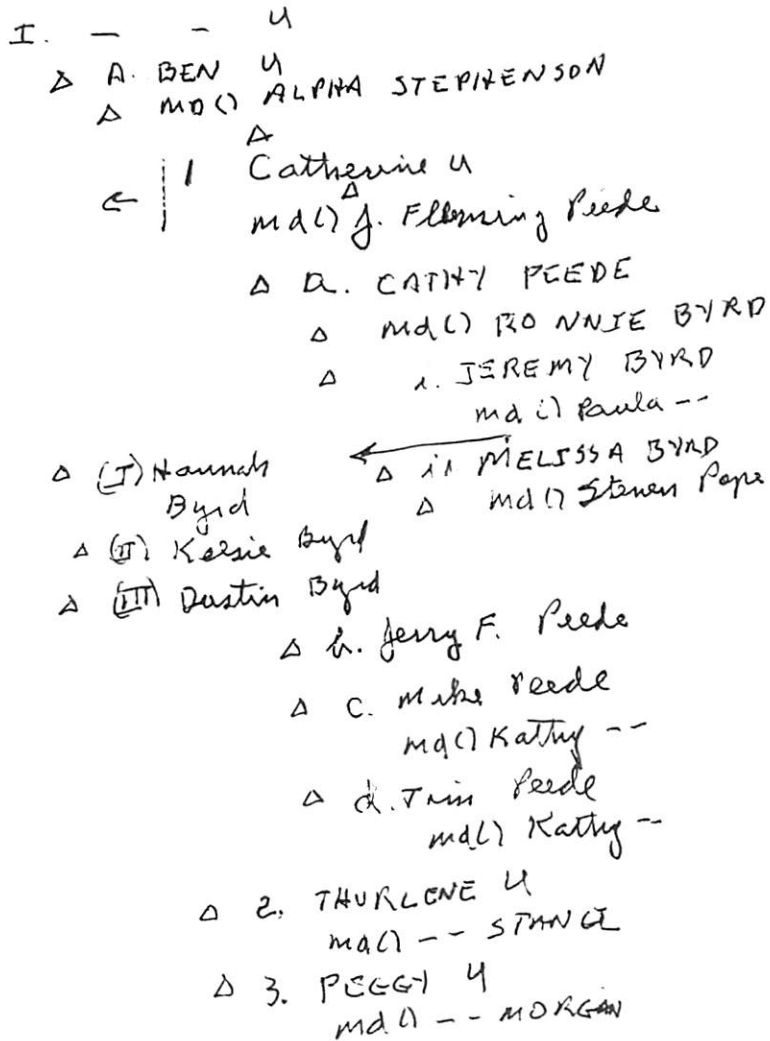 I. — — U
Δ A. BEN U
Δ MD () ALPHA STEPHENSON
Δ
← 1 Catherine U
Δ
md () J. Flleming Peede
Δ a. CATHY PEEDE
Δ md () RONNIE BYRD
Δ i. JEREMY BYRD
md () Paula --
Δ ii MELISSA BYRD
Δ md () Steven Pope
Δ (I) Hannah
Byrd
Δ (II) Kelsie Byrd
Δ (III) Dustin Byrd
Δ b. Jerry F. Peede
Δ c. Mike Peede
md () Kathy --
Δ d. Tim Peede
md () Kathy --
Δ 2. THURLENE U
md () -- 
Δ 3. PEGGY U
md () -- MORGAN